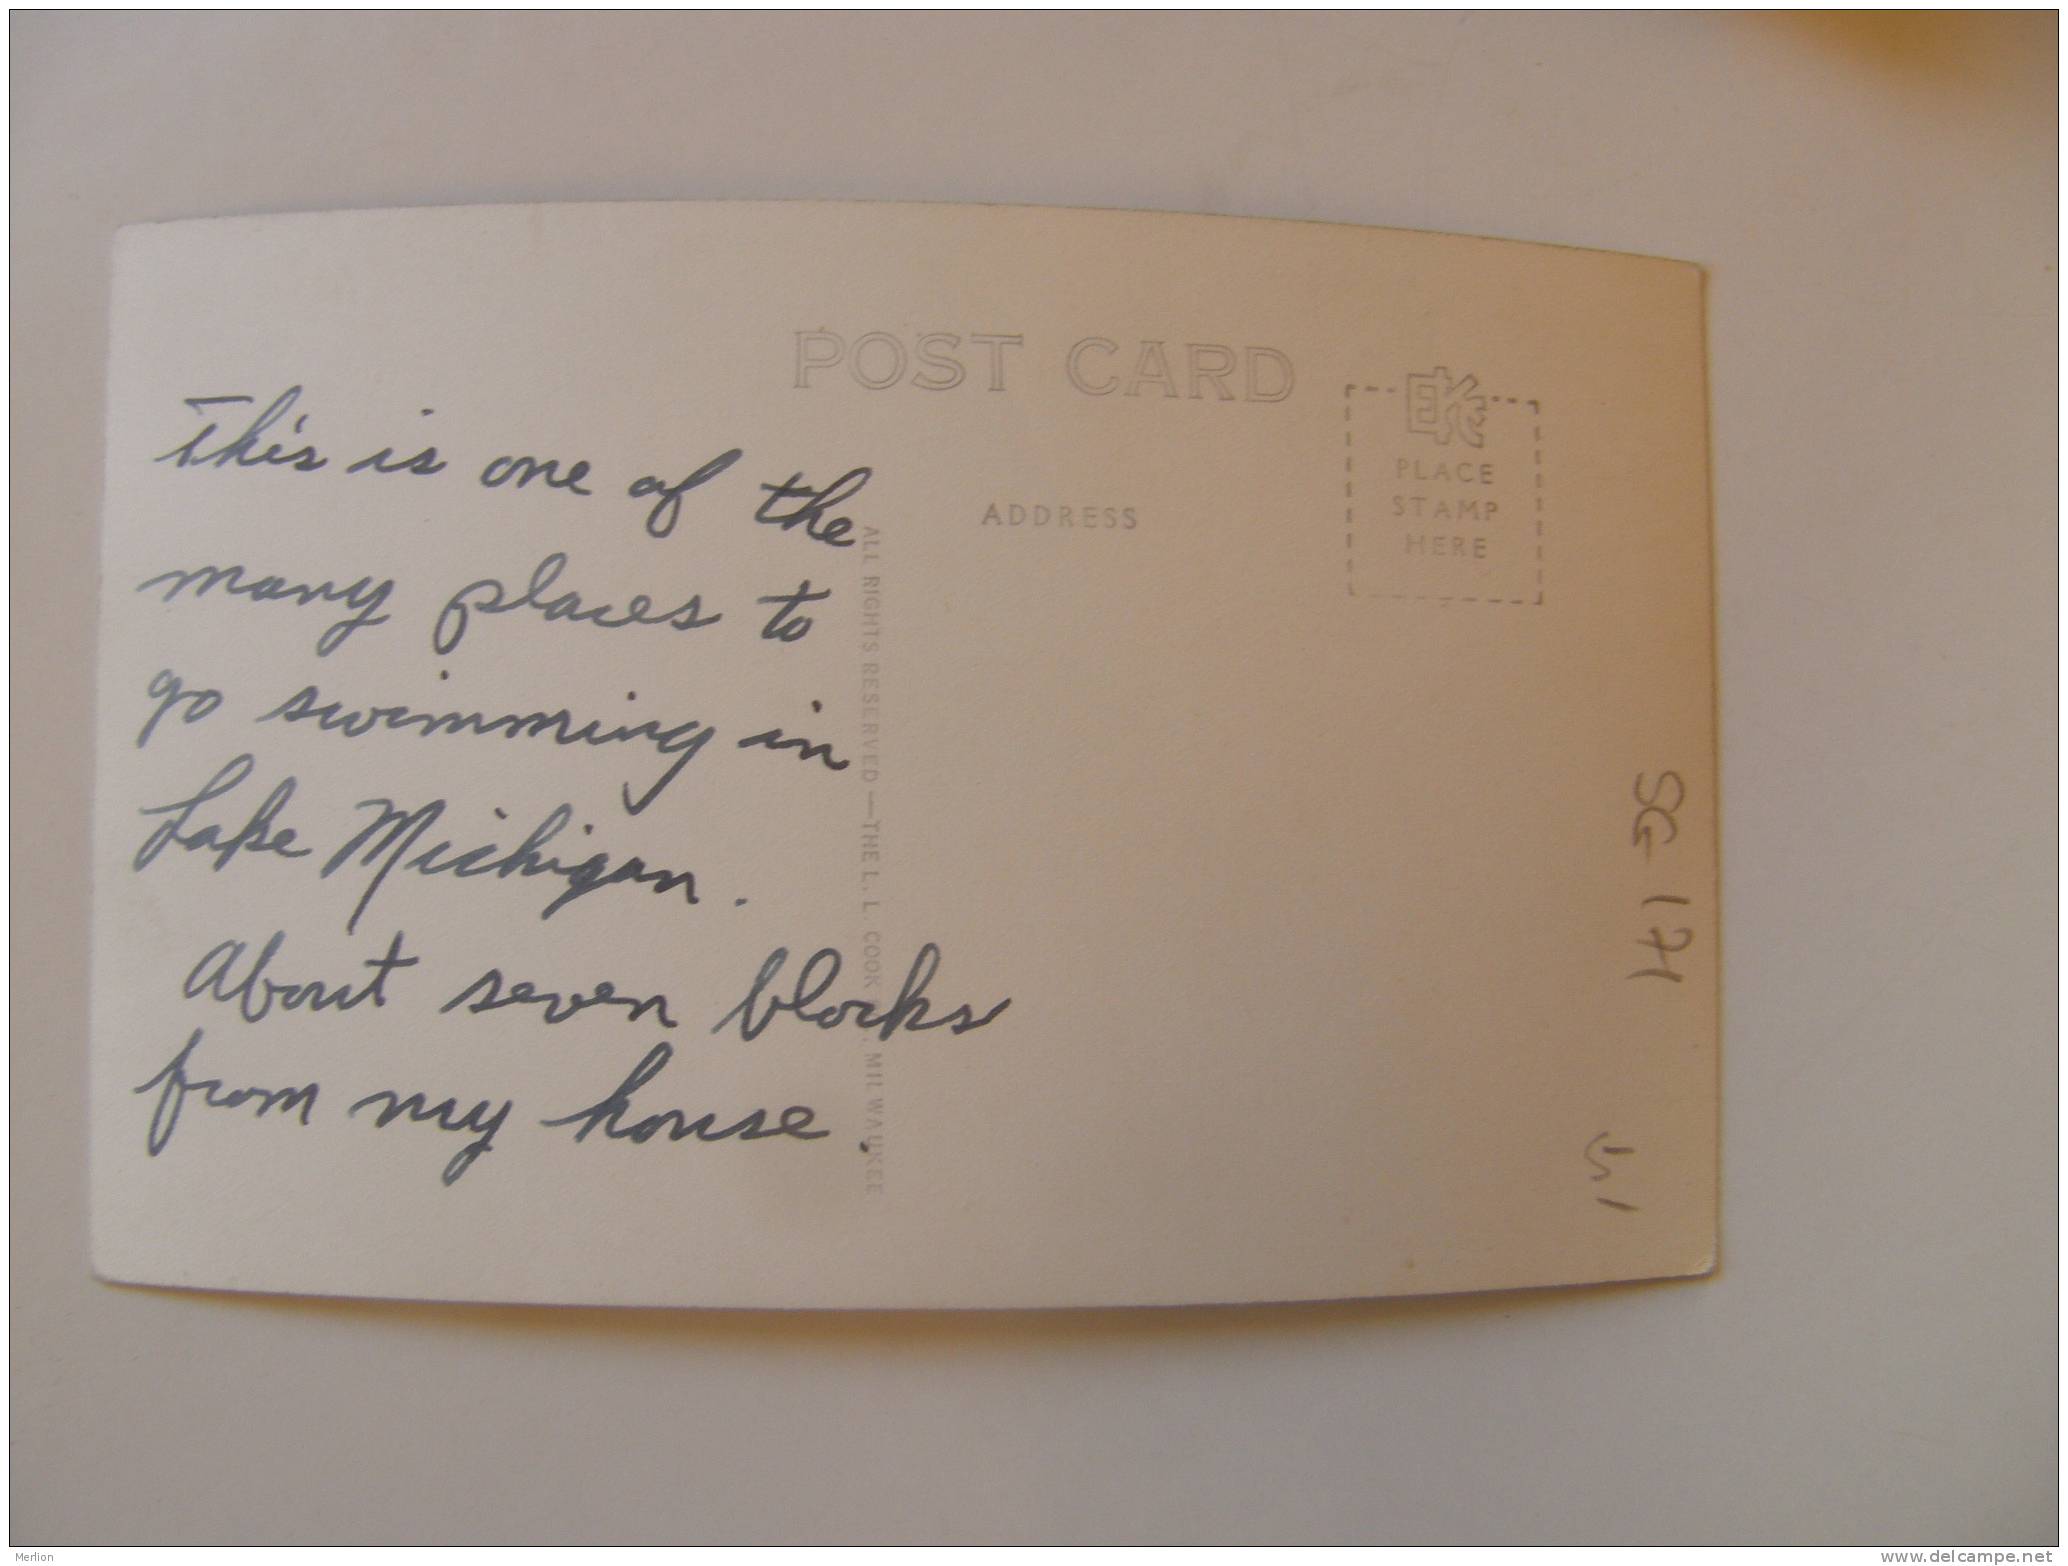 This is one of the
many places to
go swimming in
Lake Michigan.
About seven blocks
from my house.
POST CARD
ADDRESS
EKC
PLACE
STAMP
HERE
ALL RIGHTS RESERVED—THE L. L. COOK CO., MILWAUKEE
SG 171
Merlion
www.delcampe.net